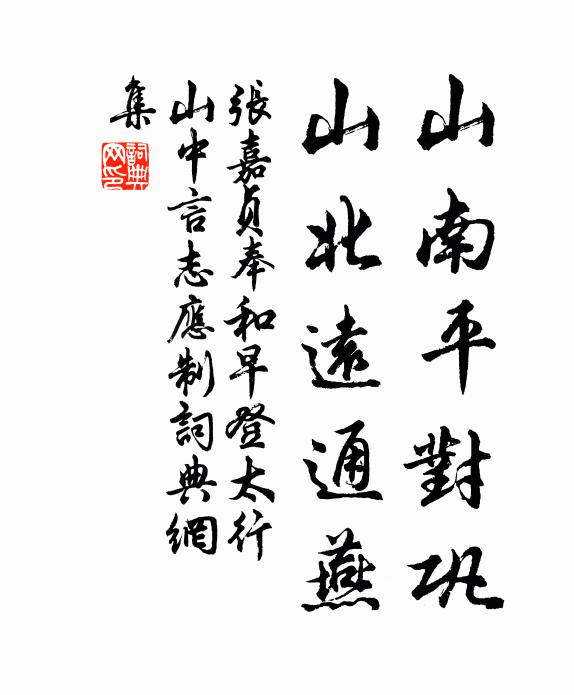 山南平對巩
山北遠通燕
張嘉貞奉和早登太行
山中言志應制詞典網
集
詞典
网印